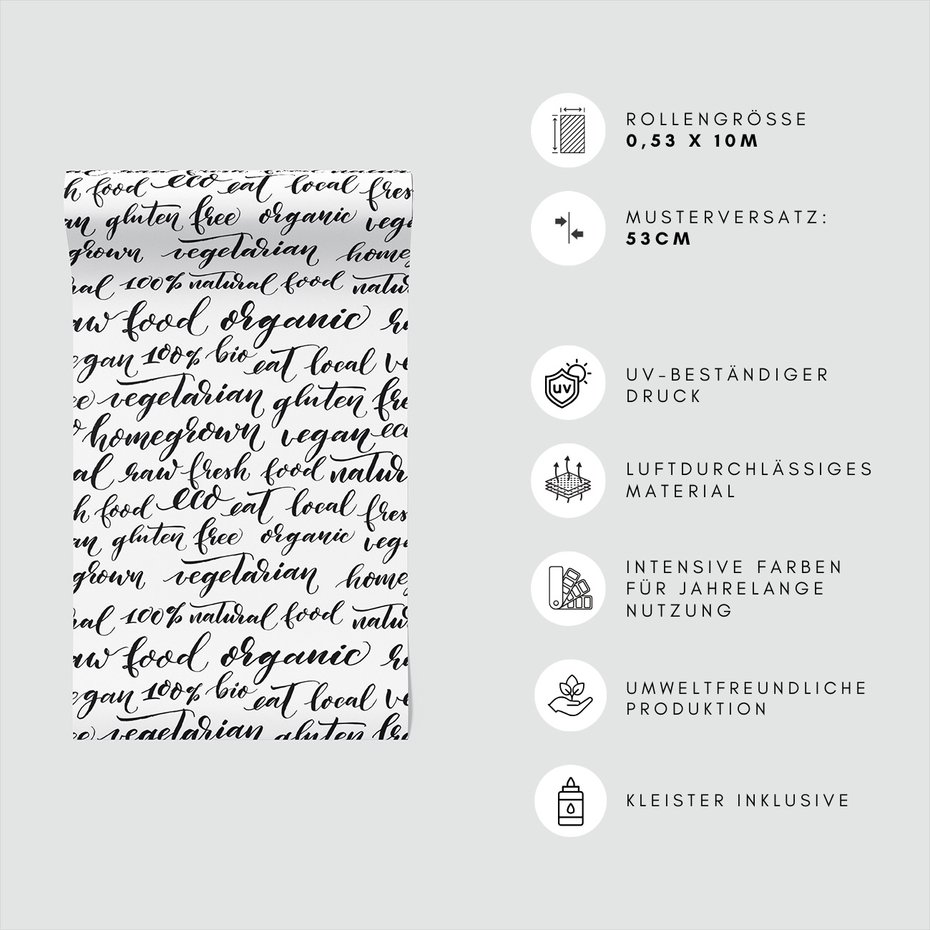 h food eco eat local fres
an gluten free organic veg
grown vegetarian home
ral 100% natural food natu
aw food organic
egan 100% bio eat local ve
ee vegetarian gluten fre
homegrown vegan eco
al raw fresh food natur
h food eco eat local fres
an gluten free organic veg
grown vegetarian home
ral 100% natural food natu
aw food organic
egan 100% bio eat local ve
ee vegetarian gluten fre
ROLLENGRÖSSE
0,53 X 10M
MUSTERVERSATZ:
53CM
UV
UV-BESTÄNDIGER
DRUCK
LUFTDURCHLÄSSIGES
MATERIAL
INTENSIVE FARBEN
FÜR JAHRELANGE
NUTZUNG
UMWELTFREUNDLICHE
PRODUKTION
KLEISTER INKLUSIVE